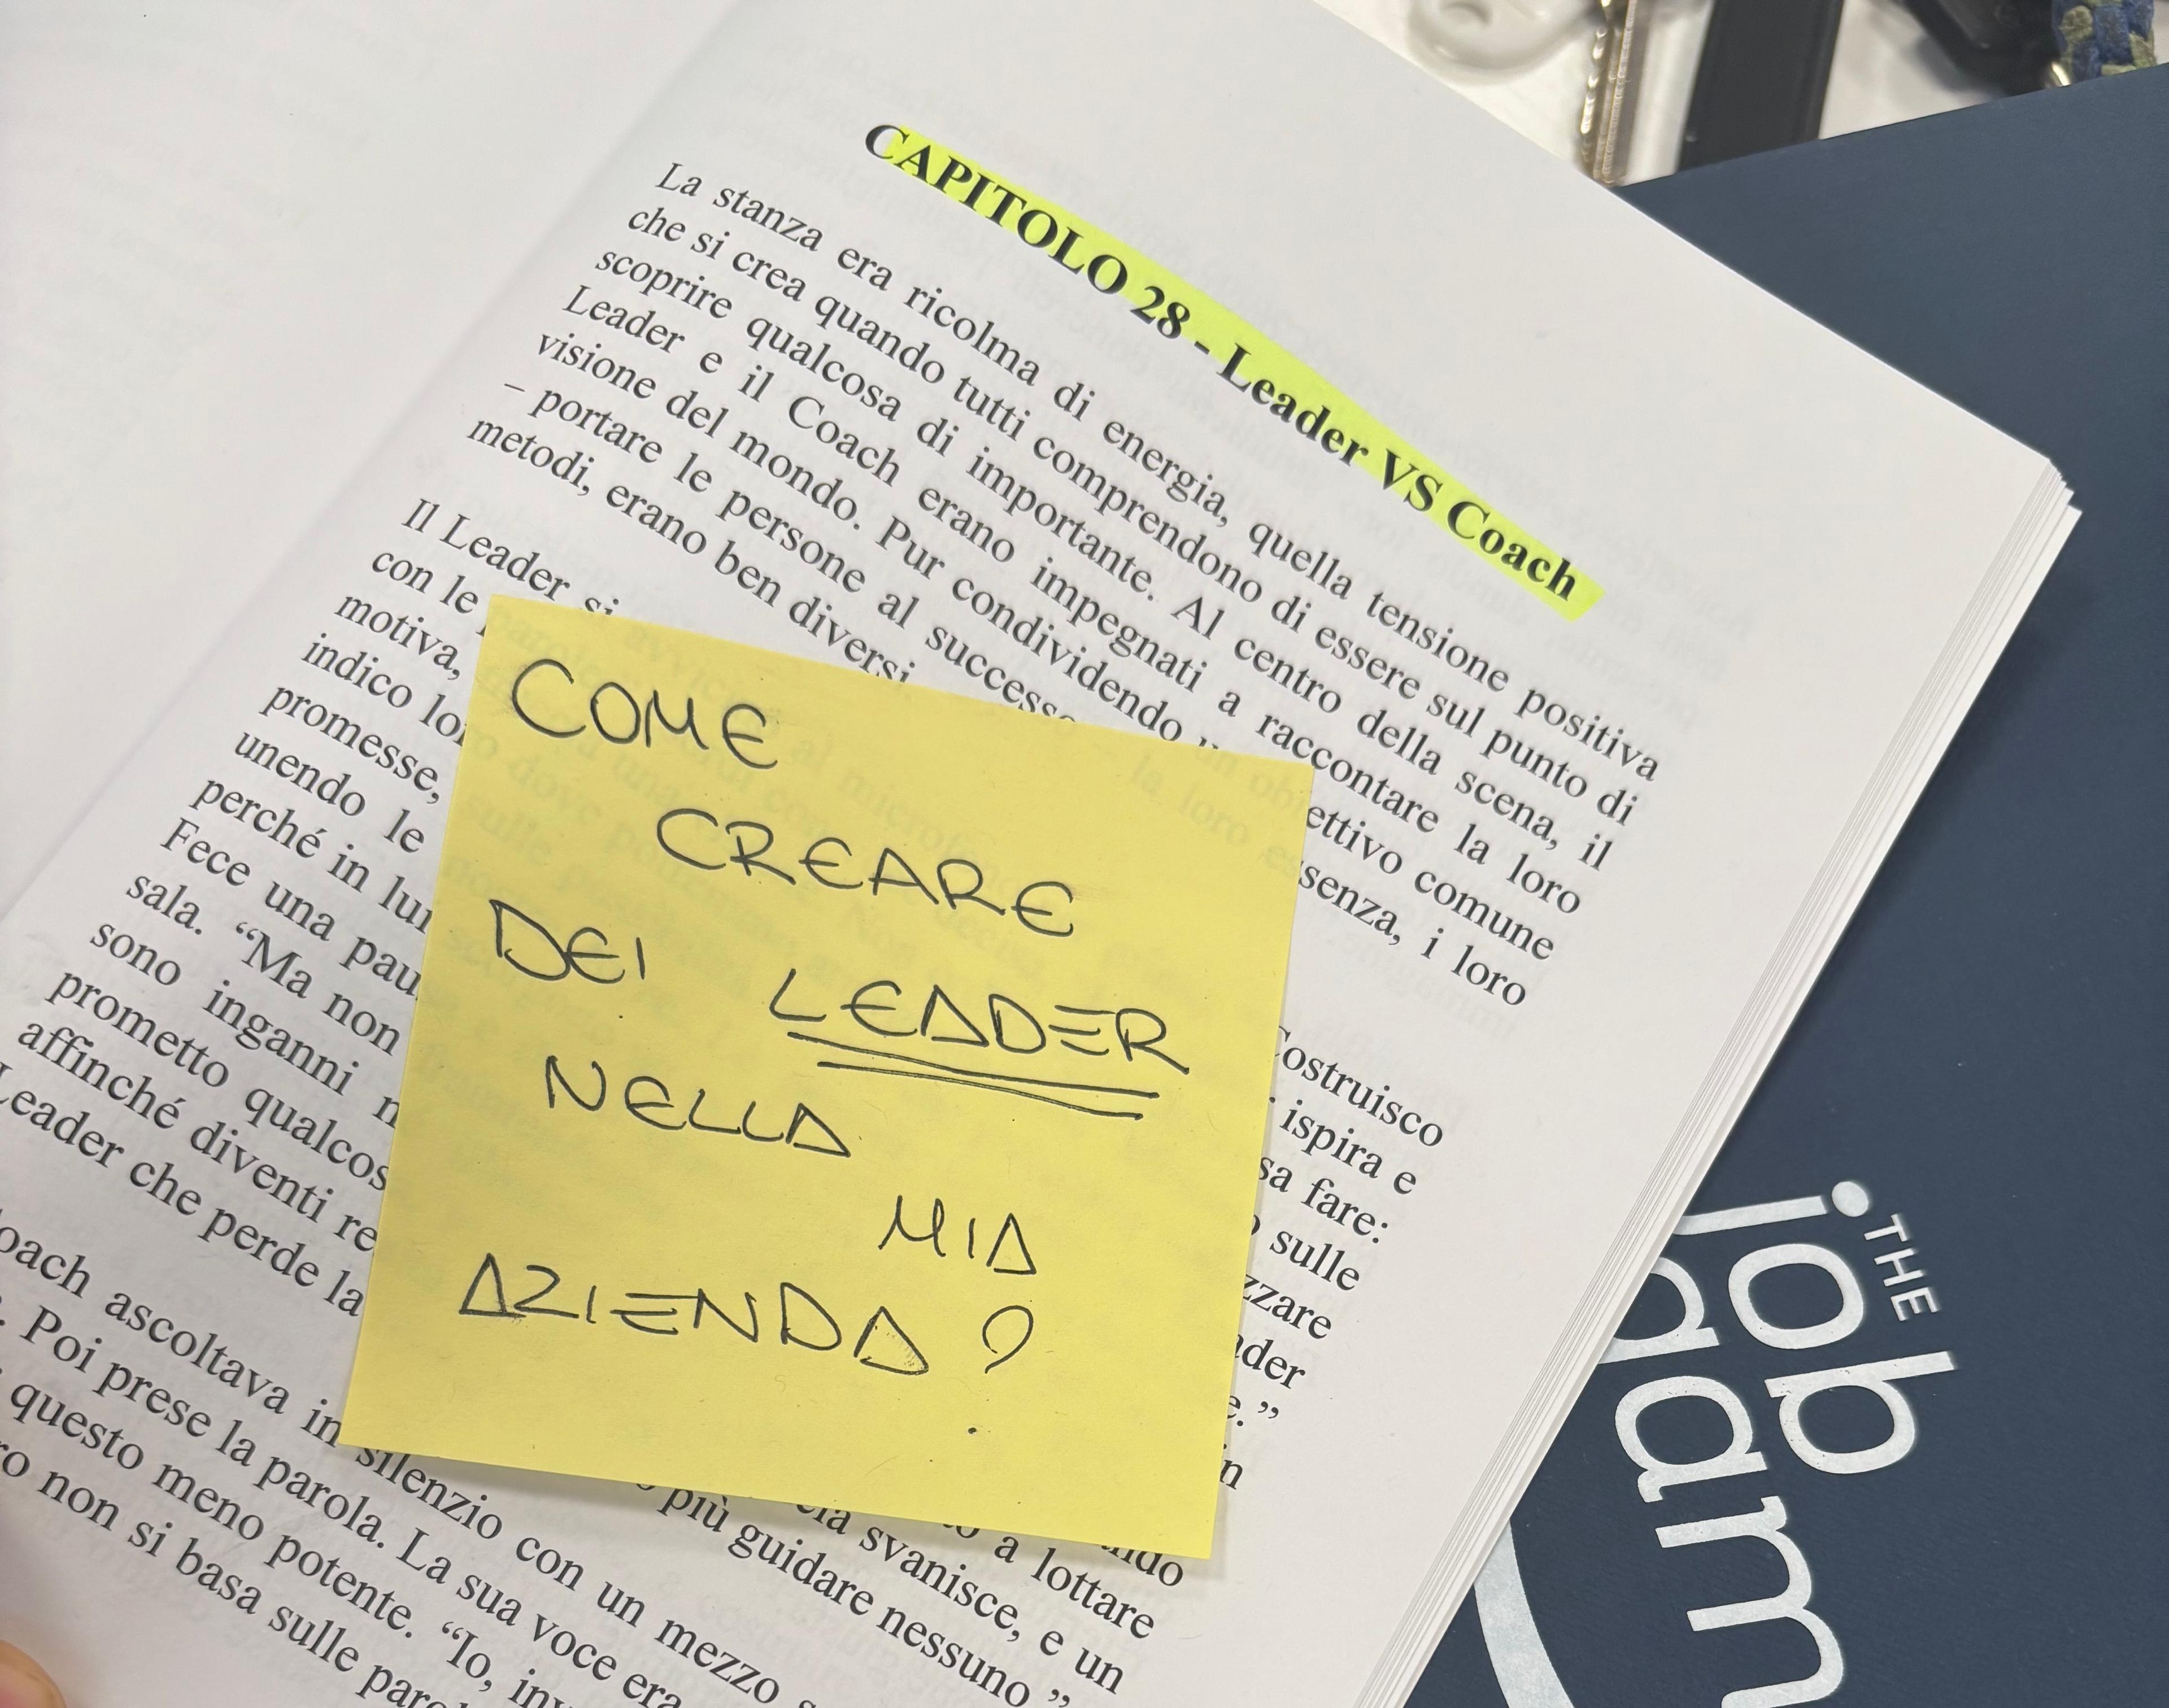 CAPITOLO 28 - Leader VS Coach
La stanza era ricolma di energia, quella tensione positiva
che si crea quando tutti comprendono di essere sul punto di
scoprire qualcosa di importante. Al centro della scena, il
Leader e il Coach erano impegnati a raccontare la loro
visione del mondo. Pur condividendo un obiettivo comune
– portare le persone al successo – la loro essenza, i loro
metodi, erano ben diversi
Il Leader si Costruisco
con le ispira e
motiva, sa fare:
indico loro dove sulle
promesse,
unendo le
perché in
Fece una
sala. “Ma non
sono inganni
prometto
affinché diventi
Leader che perde la svanisce, e un
più guidare nessuno.”
ascoltava in silenzio con un mezzo
Poi prese la parola. La sua voce era
questo meno potente. “Io,
non si basa sulle
a lottare
COME
CREARE
DEI LEADER
NELLA
MIA
AZIENDA?
THE
job